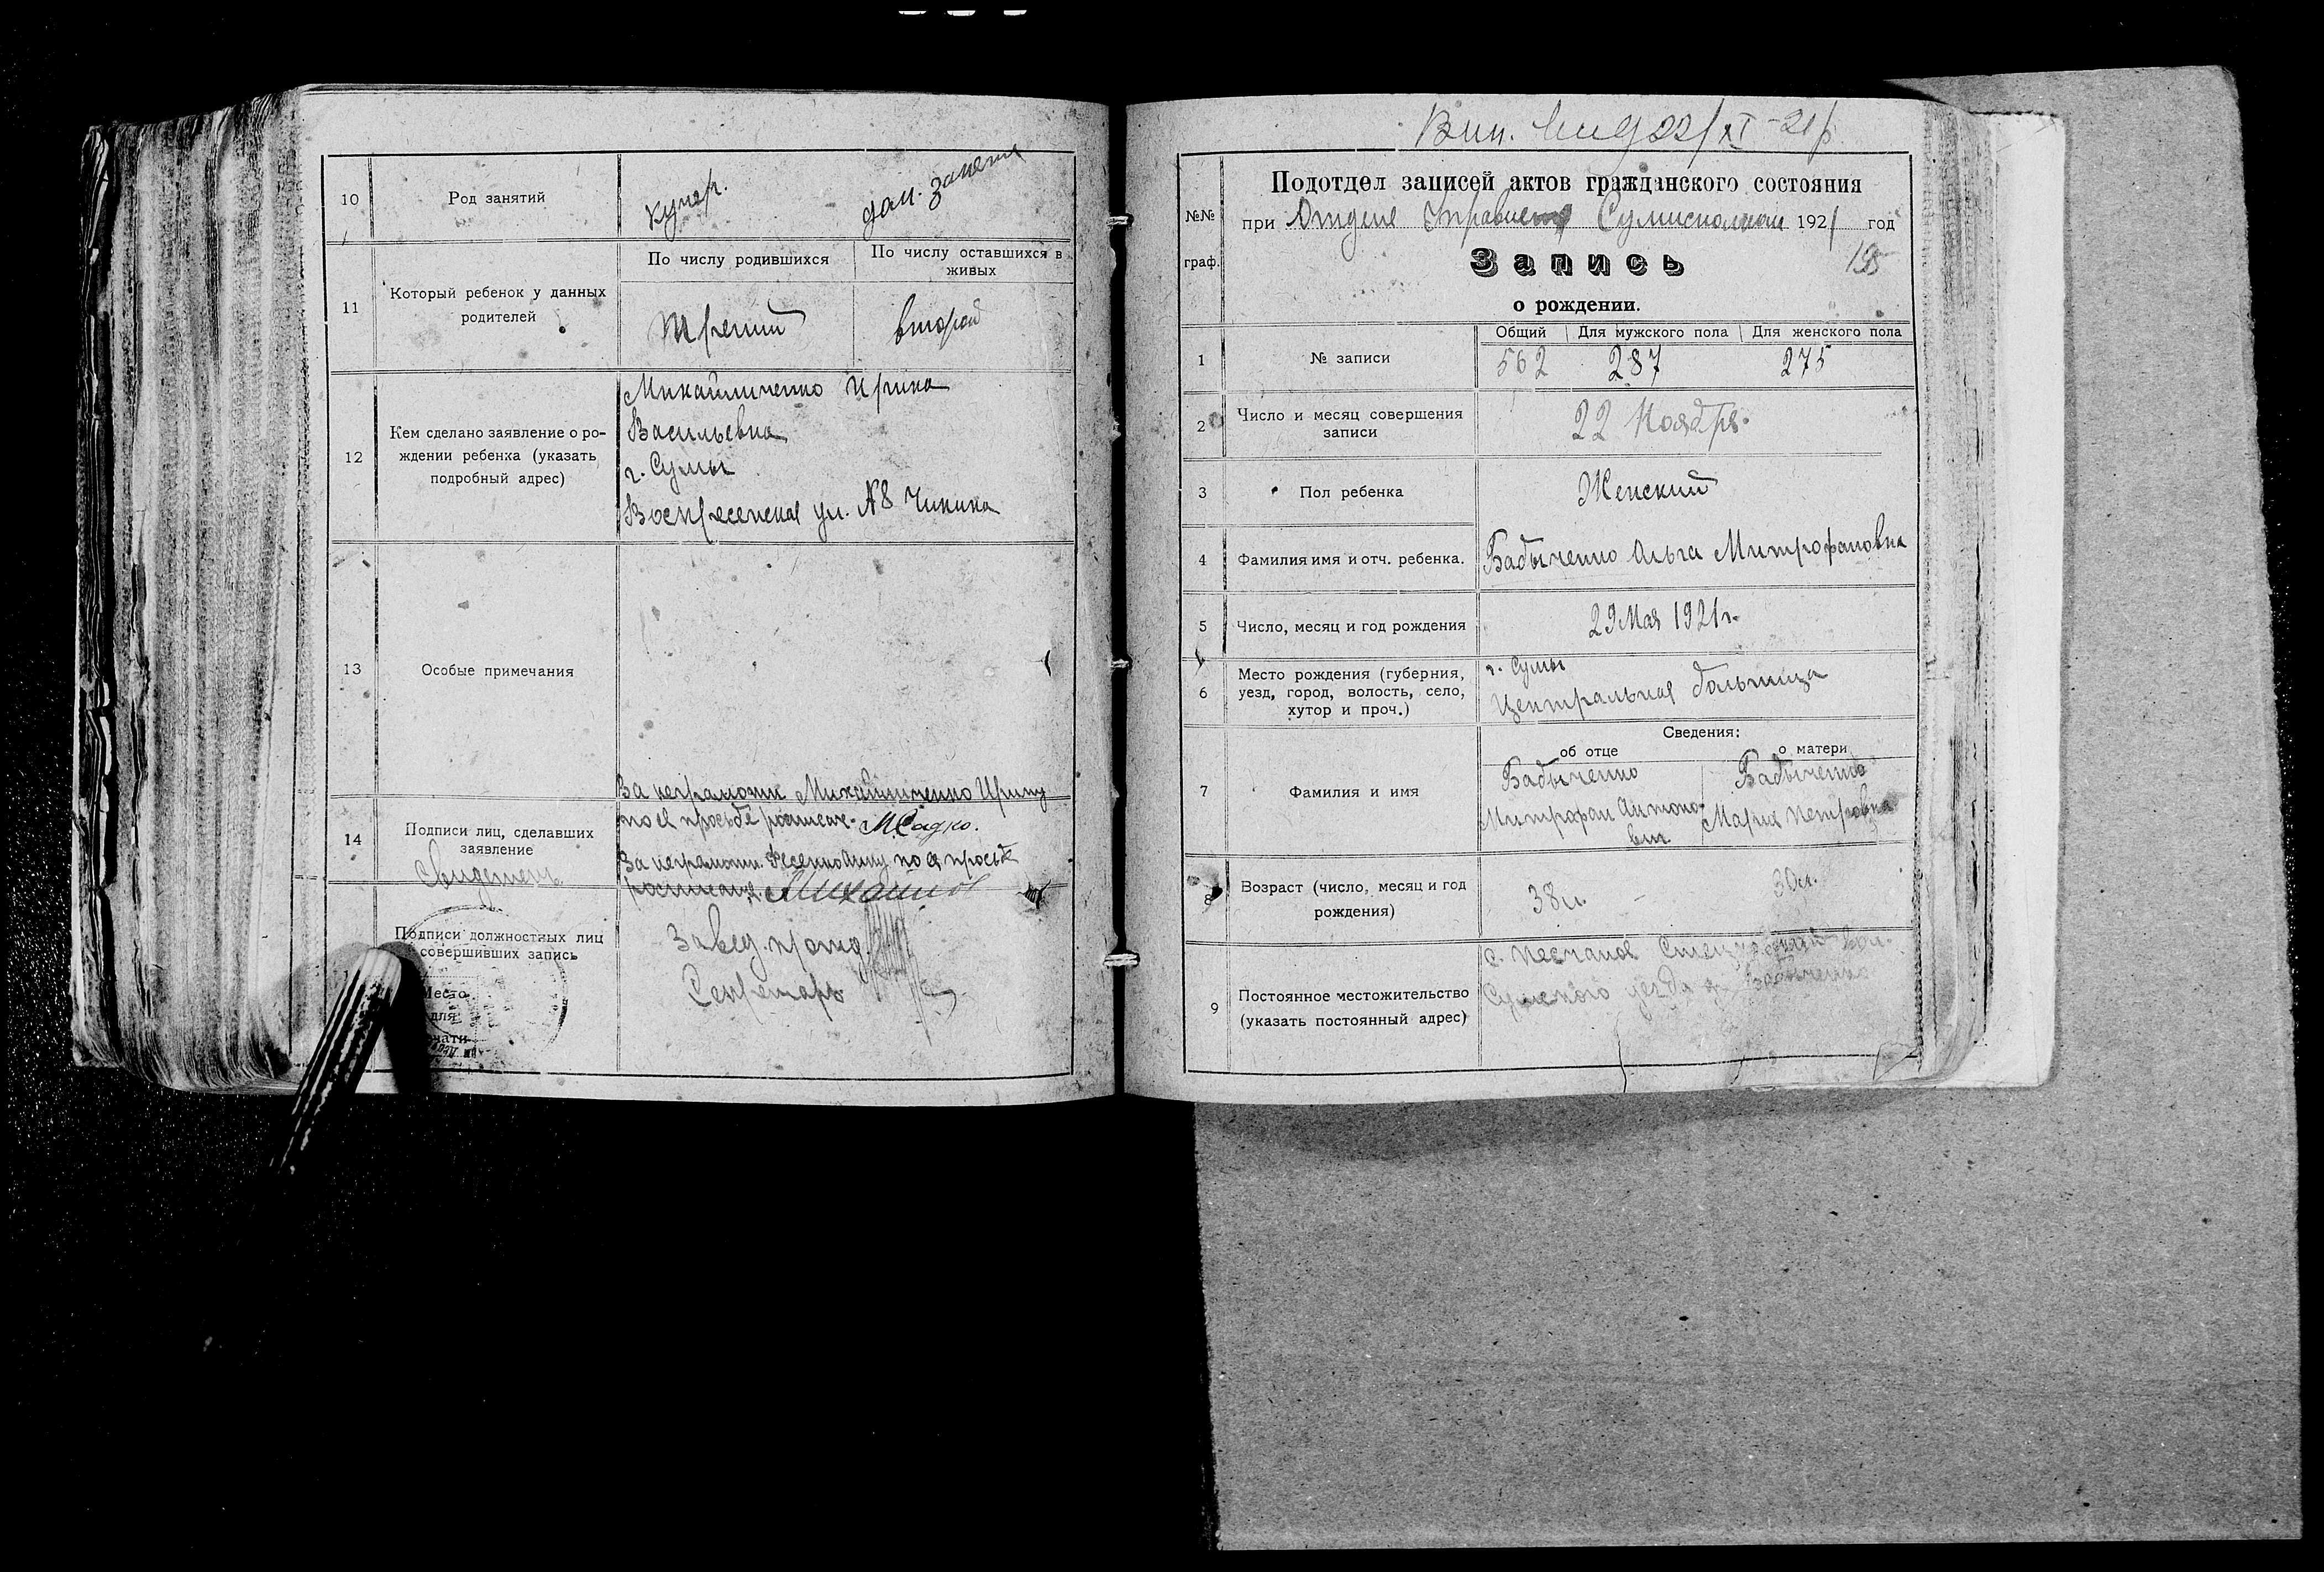 10 Род занятий кучер. дом. занят
11 Который ребенок у данных родителей
По числу родившихся
По числу оставшихся в живых
третий
второй
12 Кем сделано заявление о ро-
ждении ребенка (указать
подробный адрес)
Михайличенко Ирина
Васильевна
г. Сумы
Воскресенская ул. №8 Чикина
13 Особые примечания
14 Подписи лиц, сделавших
заявление
Свидетель
За неграмотн. Михайличенко Ирину
по ея просьбе росписал. МСадко.
За неграмотн. Фесенко Анну по ея просьбе
росписался Михайлов
Подписи должностных лиц
совершивших запись
Место
для
Завед. п/отд.
Секретарь
Вип. 22/XI-21р.
№№
граф.
Подотдел записей актов гражданского состояния
при Отделе Управлен Сумисполкома 1921 год
Запись
195
о рождении.
1 № записи
Общий Для мужского пола Для женского пола
562 287 275
2 Число и месяц совершения
записи
22 Ноября.
3 Пол ребенка Женский
4 Фамилия имя и отч. ребенка. Бабыченко Ольга Митрофановна
5 Число, месяц и год рождения 29 Мая 1921 г.
6 Место рождения (губерния,
уезд, город, волость, село,
хутор и проч.)
г. Сумы
Центральная больница
Сведения:
об отце о матери
7 Фамилия и имя
Бабыченко
Митрофан Антоно-
вич
Бабыченко
Мария Петровна
8 Возраст (число, месяц и год
рождения)
38 л. 30 л.
9 Постоянное местожительство
(указать постоянный адрес)
с. Песчаное вол.
Сумского уезда Бабыченко